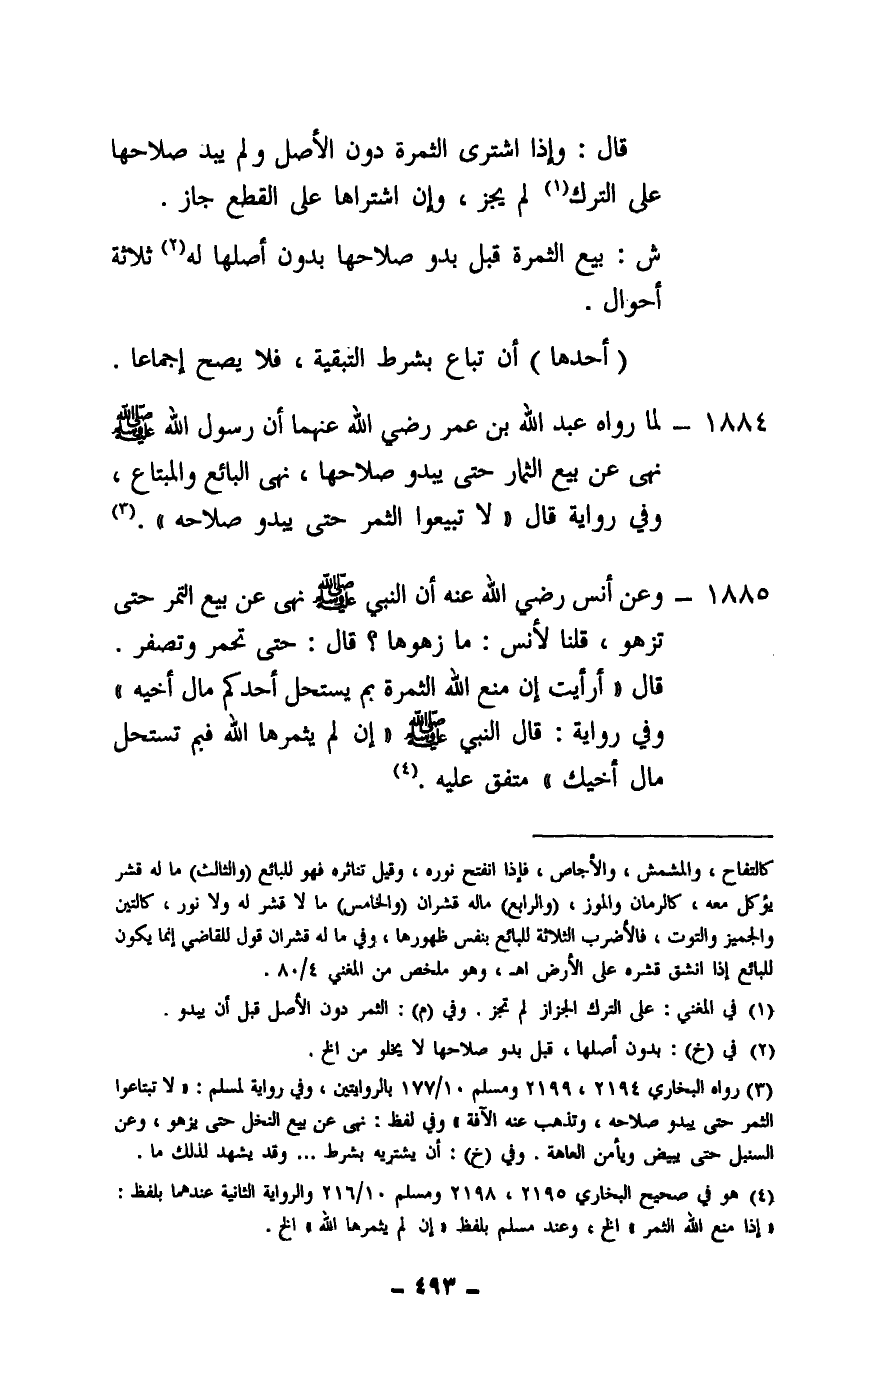 قال : وإذا اشترى الثمرة دون الأصل ولم يبد صلاحها
على الترك(١) لم يجز ، وإن اشتراها على القطع جاز .
ش : بيع الثمرة قبل بدو صلاحها بدون أصلها له(٢) ثلاثة
أحوال .
( أحدها ) أن تباع بشرط التبقية ، فلا يصح إجماعا .
١٨٨٤ – لما رواه عبد الله بن عمر رضي الله عنهما أن رسول الله ﷺ
نهى عن بيع الثمار حتى يبدو صلاحها ، نهى البائع والمبتاع ،
وفي رواية قال « لا تبيعوا الثمر حتى يبدو صلاحه » .(٣)
١٨٨٥ – وعن أنس رضي الله عنه أن النبي ﷺ نهى عن بيع التمر حتى
تزهو ، قلنا لأنس : ما زهوها ؟ قال : حتى تحمر وتصفر .
قال « أرأيت إن منع الله الثمرة بم يستحل أحدكم مال أخيه »
وفي رواية : قال النبي ﷺ « إن لم يثمرها الله فبم تستحل
مال أخيك » متفق عليه .(٤)
كالتفاح ، والمشمش ، والأجاص ، فإذا انفتح نوره ، وقيل تناثره فهو للبائع (والثالث) ما له قشر
يؤكل معه ، كالرمان والموز ، (والرابع) ماله قشران (والخامس) ما لا قشر له ولا نور ، كالتين
والجميز والتوت ، فالأضرب الثلاثة للبائع بنفس ظهورها ، وفي ما له قشران قول للقاضي إنما يكون
للبائع إذا انشق قشره على الأرض اهـ ، وهو ملخص من المغني ٨٠/٤ .
(١) في المغني : على الترك الجزاز لم تجز . وفي (م) : الثمر دون الأصل قبل أن يبدو .
(٢) في (خ) : بدون أصلها ، قبل بدو صلاحها لا يخلو من الخ .
(٣) رواه البخاري ٢١٩٤ ، ٢١٩٩ ومسلم ١٧٧/١٠ بالروايتين ، وفي رواية لمسلم : « لا تبتاعوا
الثمر حتى يبدو صلاحه ، وتذهب عنه الآفة » وفي لفظ : نهى عن بيع النخل حتى يزهو ، وعن
السنبل حتى يبيض ويأمن العاهة . وفي (خ) : أن يشتريه بشرط ... وقد يشهد لذلك ما .
(٤) هو في صحيح البخاري ٢١٩٥ ، ٢١٩٨ ومسلم ٢١٦/١٠ والرواية الثانية عندهما بلفظ :
« إذا منع الله الثمر » الخ ، وعند مسلم بلفظ « إن لم يثمرها الله » الخ .
– ٤٩٣ –